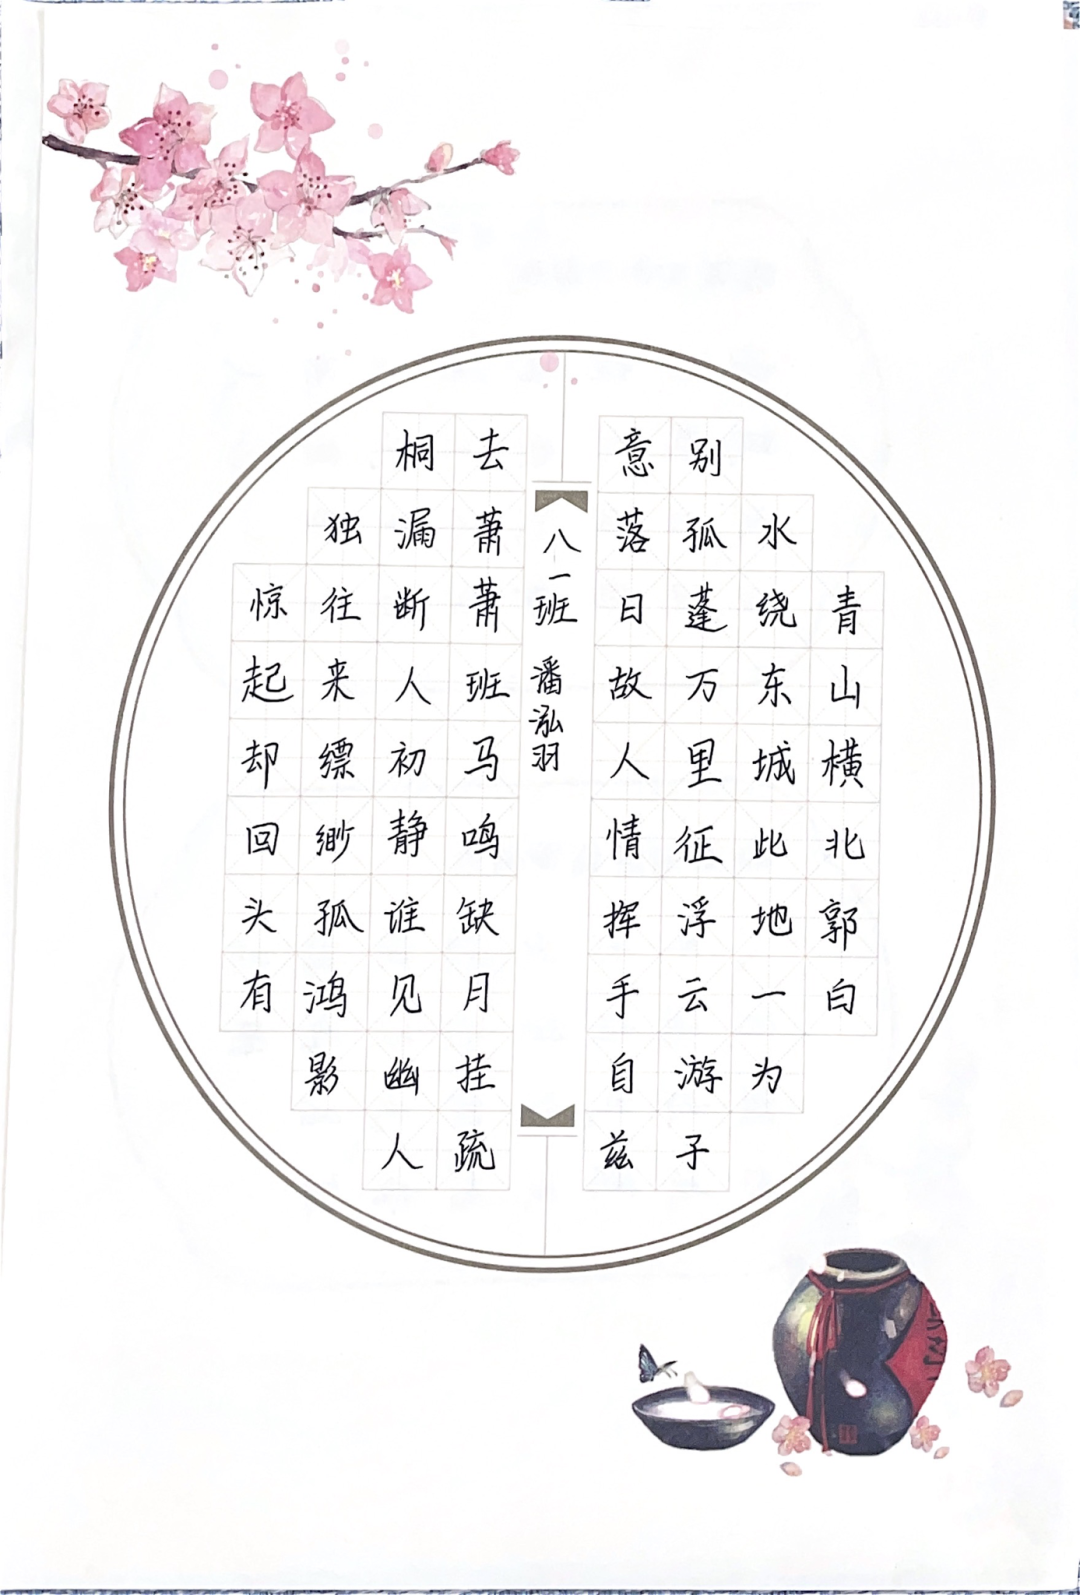 青山横北郭白
水绕东城此地一为
别孤蓬万里征浮云游子
意落日故人情挥手自兹
八一班 潘泓羽
去萧萧班马鸣缺月挂疏
桐漏断人初静谁见幽人
独往来缥缈孤鸿影
惊起却回头有